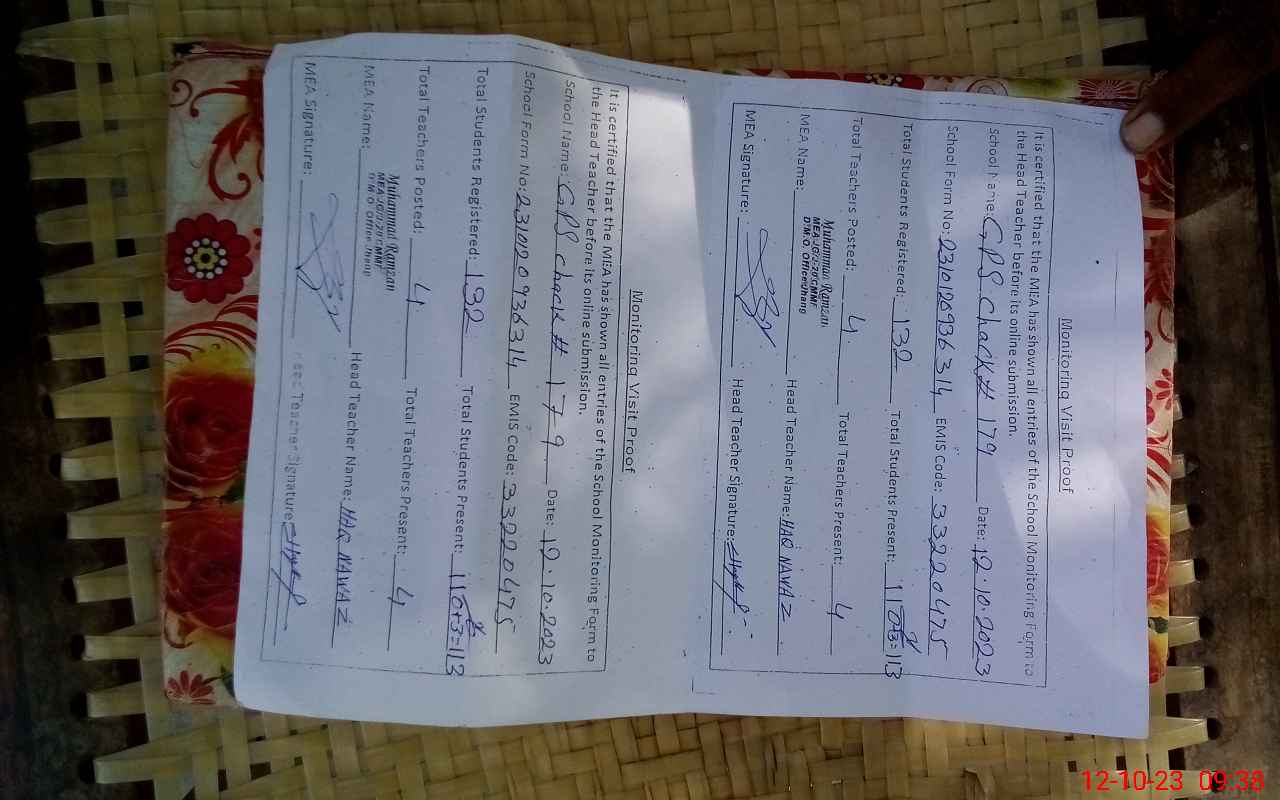 Monitoring Visit Proof
It is certified that the MEA has shown all entries of the School Monitoring Form to
the Head Teacher before its online submission.
School Name: GPS Chack # 179 Date: 12.10.2023
School Form No: 23101209936314 EMIS Code: 33220475
Total Students Registered: 132 Total Students Present: 110+3=113
Total Teachers Posted: 4 Total Teachers Present: 4
MEA Name: Muhammad Ramzan Head Teacher Name: HAQ NAWAZ
D.M.O. Office Jhang
MEA Signature: Head Teacher Signature:
Monitoring Visit Proof
It is certified that the MEA has shown all entries of the School Monitoring Form to
the Head Teacher before its online submission.
School Name: GPS Chack # 179 Date: 12.10.2023
School Form No: EMIS Code: 33220475
Total Students Registered: 132 Total Students Present: 110+3=113
Total Teachers Posted: 4 Total Teachers Present: 4
MEA Name: Muhammad Ramzan Head Teacher Name: HAQ NAWAZ
D.M.O. Office Jhang
MEA Signature: Head Teacher Signature:
12-10-23 09:38